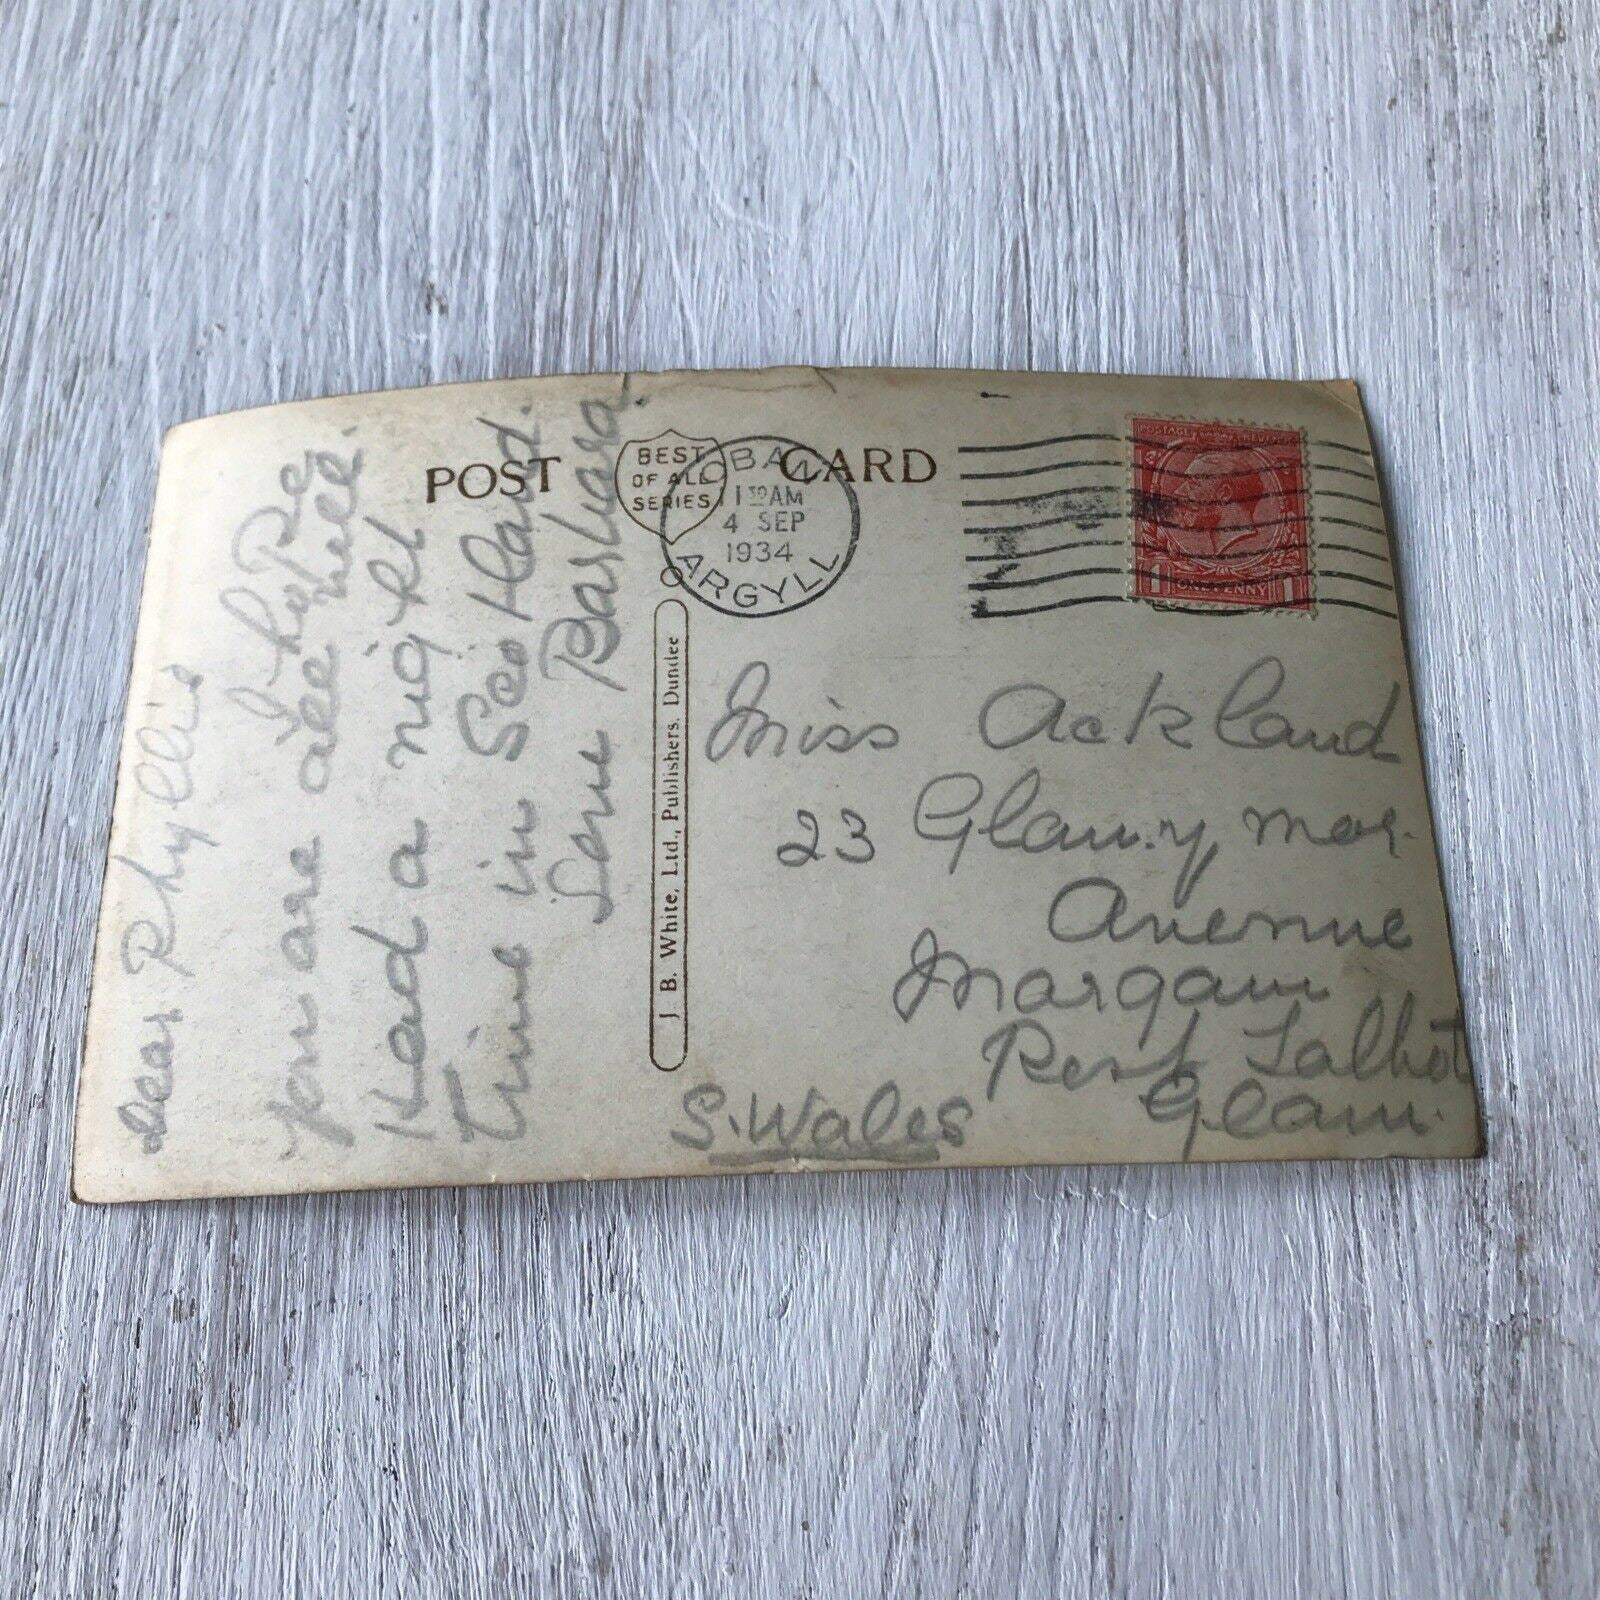 POST CARD
BEST
OF ALL
SERIES
OBAN
1 30 AM
4 SEP
1934
ARGYLL
POSTAGE REVENUE
1 ONE PENNY 1
J. B. White, Ltd., Publishers, Dundee
Dear Phyllis
I hope
you are all well.
Had a night
time in Scotland.
Love Barbara.
Miss Ackland
23 Glanymor
Avenue
Margam
Port Talbot
Glam.
S. Wales